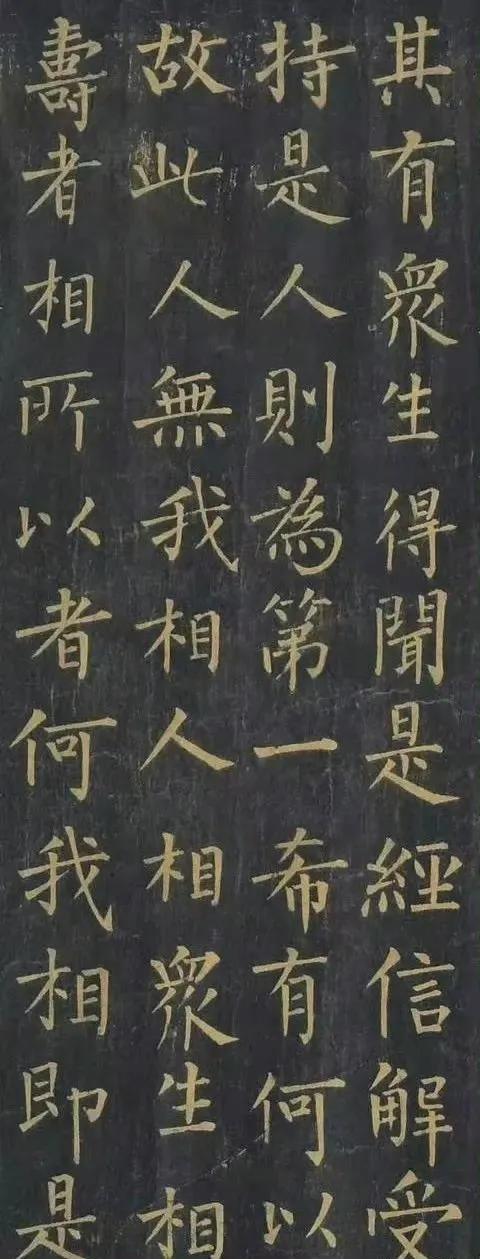 其有衆生得聞是經信解受
持是人則為第一希有何以
故此人無我相人相衆生相
壽者相所以者何我相即是